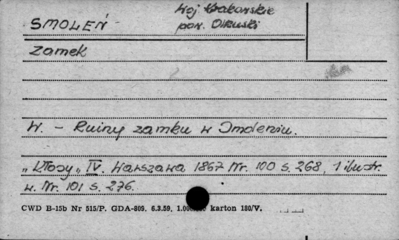 SMOLEŃ -
Woj Krakowskie
pow. Olkuski
Zamek
W. - Ruiny zamku w Smoleniu.
„Kłosy" IV. Warszawa 1867 Nr. 100 s. 268, 1 ilustr.
w. Nr. 101 s. 276.
CWD B-15b Nr 515/P. GDA-809. 6.3.59. karton 180/V.